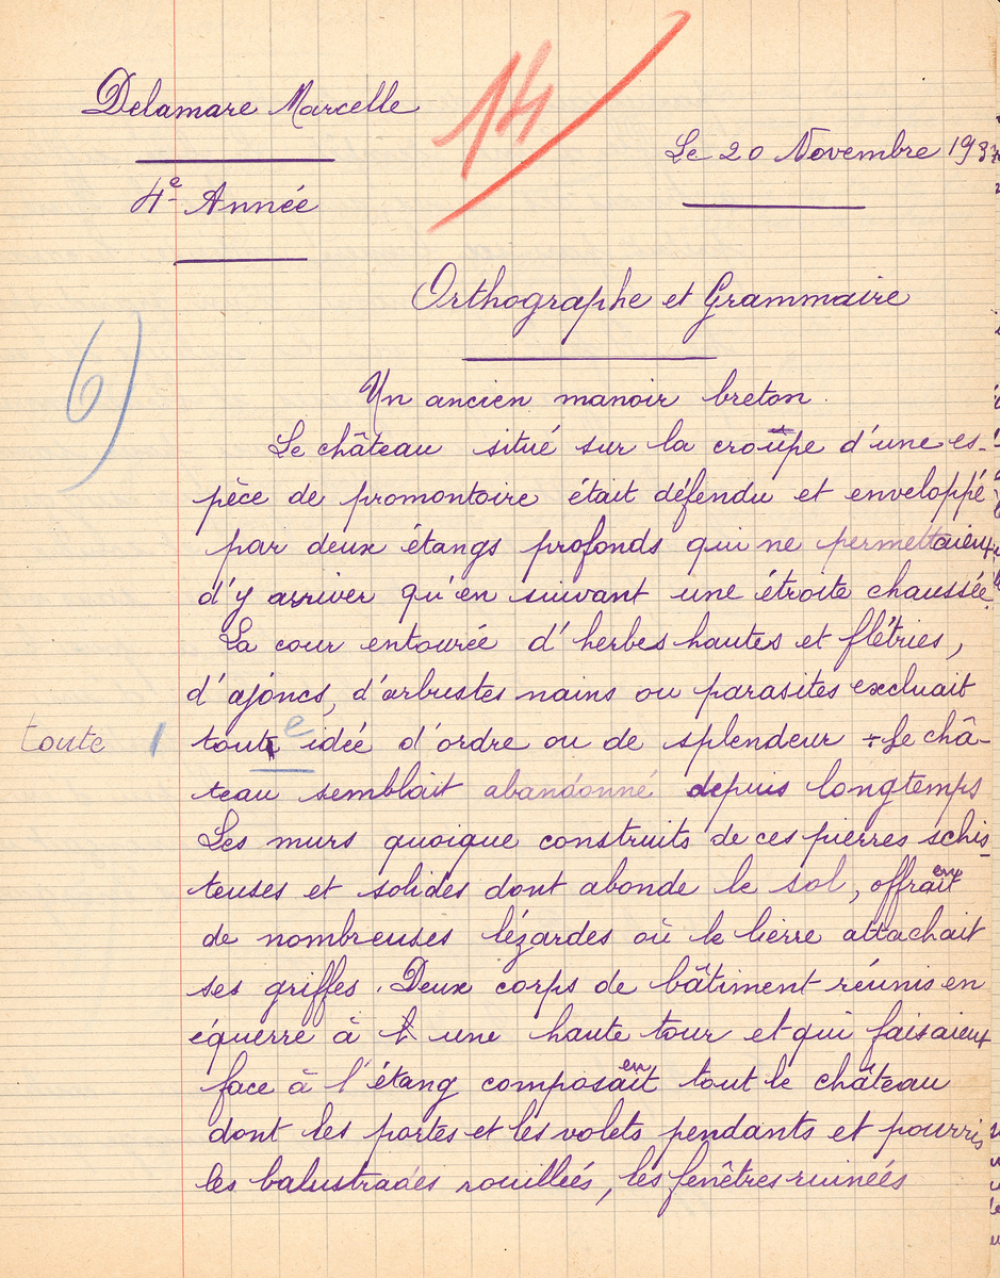 Delamare Marcelle
14
Le 20 Novembre 1937
4e Année
Orthographe et Grammaire
6)
Un ancien manoir breton.
Le château situé sur la croupe d'une es-
pèce de promontoire était défendu et enveloppé
par deux étangs profonds qui ne permettaient
d'y arriver qu'en suivant une étroite chaussée.
La cour entourée d'herbes hautes et flétries,
d'ajoncs, d'arbustes nains ou parasites excluait
toute 1 toute idée d'ordre ou de splendeur + Le châ-
teau semblait abandonné depuis longtemps
Les murs quoique construits de ces pierres schis-
teuses et solides dont abonde le sol, offraient
de nombreuses lézardes où le lierre attachait
ses griffes. Deux corps de bâtiment réunis en
équerre à une haute tour et qui faisaient
face à l'étang composaient tout le château
dont les portes et les volets pendants et pourris
les balustrades rouillées, les fenêtres ruinées